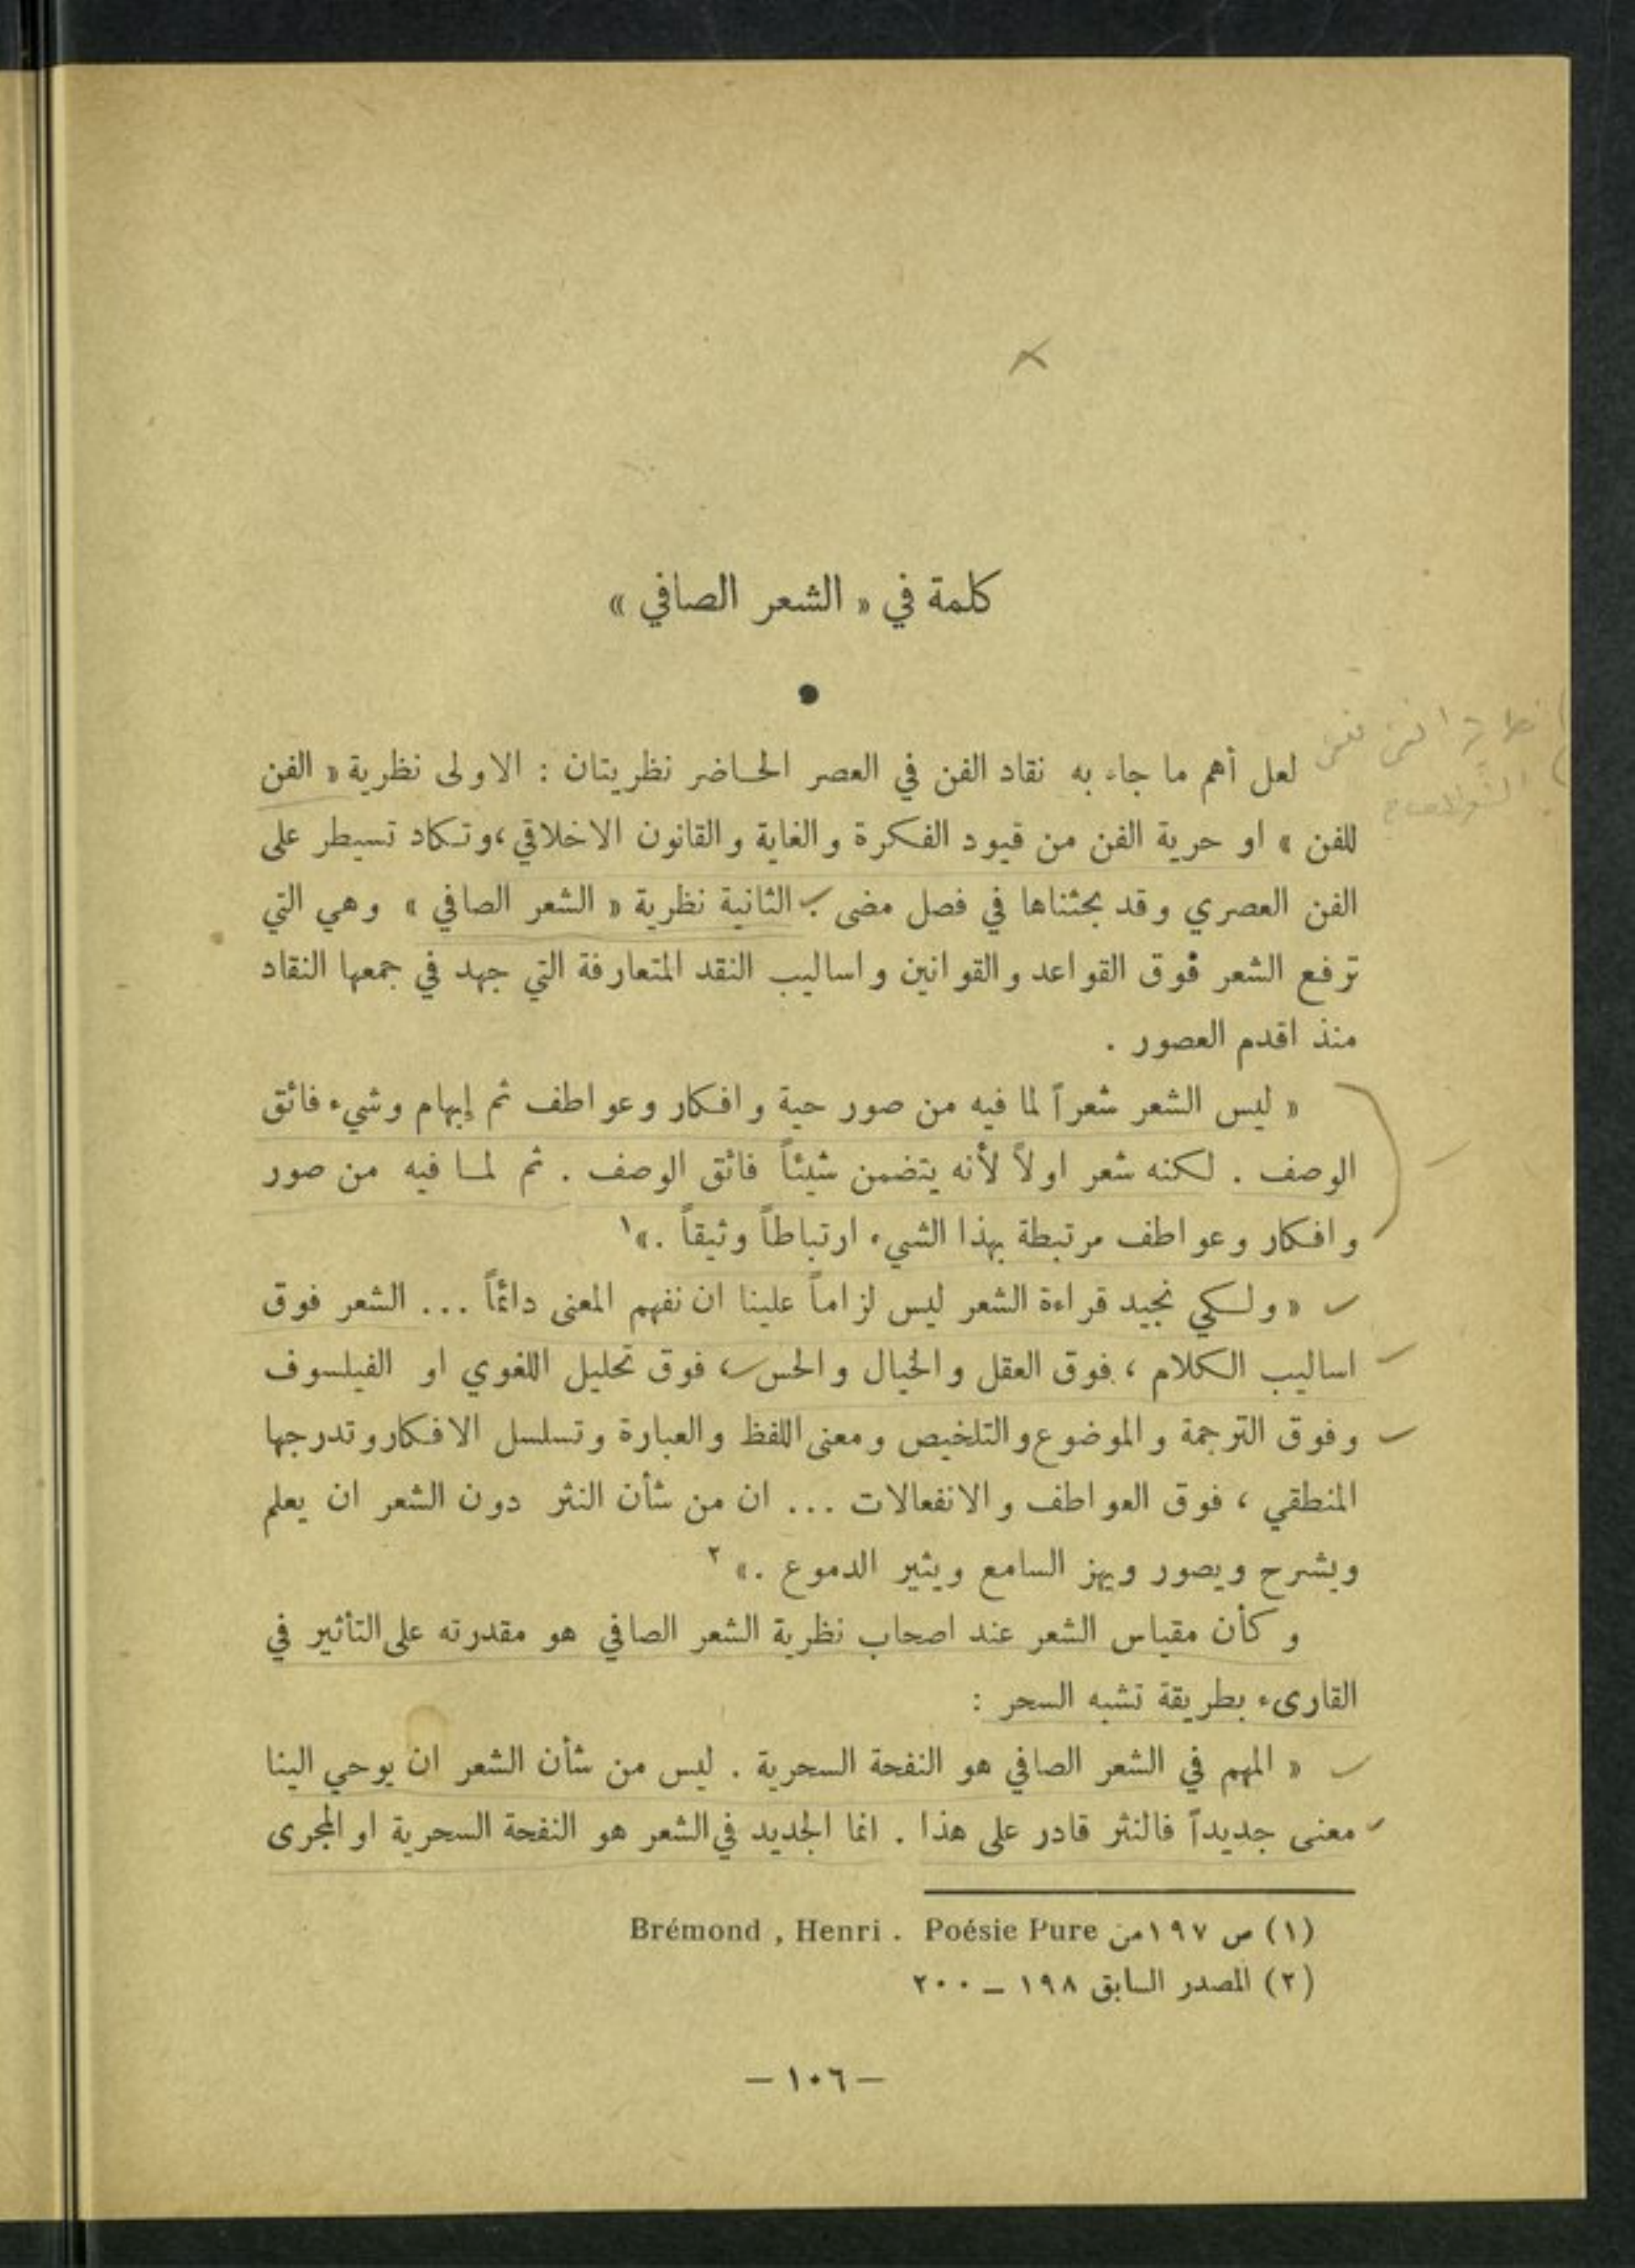 كلمة في « الشعر الصافي »
لعل أهم ما جاء به نقاد الفن في العصر الحاضر نظريتان : الاولى نظرية « الفن
للفن » او حرية الفن من قيود الفكرة والغاية والقانون الاخلاقي ، وتكاد تسيطر على
الفن العصري وقد بحثناها في فصل مضى ؛ الثانية نظرية « الشعر الصافي » وهي التي
ترفع الشعر فوق القواعد والقوانين واساليب النقد المتعارفة التي جهد في جمعها النقاد
منذ اقدم العصور .
« ليس الشعر شعراً لما فيه من صور حية وافكار وعواطف ثم إبهام وشيء فائق
الوصف . لكنه شعر اولاً لأنه يتضمن شيئاً فائق الوصف . ثم لما فيه من صور
وافكار وعواطف مرتبطة بهذا الشيء ارتباطاً وثيقاً . »١
« ولكي نجيد قراءة الشعر ليس لزاماً علينا ان نفهم المعنى دائماً ... الشعر فوق
اساليب الكلام ، فوق العقل والخيال والحس ، فوق تحليل اللغوي او الفيلسوف
وفوق الترجمة والموضوع والتلخيص ومعنى اللفظ والعبارة وتسلسل الافكار وتدرجها
المنطقي ، فوق العواطف والانفعالات ... ان من شأن النثر دون الشعر ان يعلم
ويشرح ويصور ويهز السامع ويثير الدموع . » ٢
وكأن مقياس الشعر عند اصحاب نظرية الشعر الصافي هو مقدرته على التأثير في
القارىء بطريقة تشبه السحر :
« المهم في الشعر الصافي هو النفحة السحرية . ليس من شأن الشعر ان يوحي الينا
معنى جديداً فالنثر قادر على هذا . انما الجديد في الشعر هو النفحة السحرية او المجرى
(١) ص ١٩٧ من Brémond , Henri . Poésie Pure
(٢) المصدر السابق ١٩٨ – ٢٠٠
– ١٠٦ –